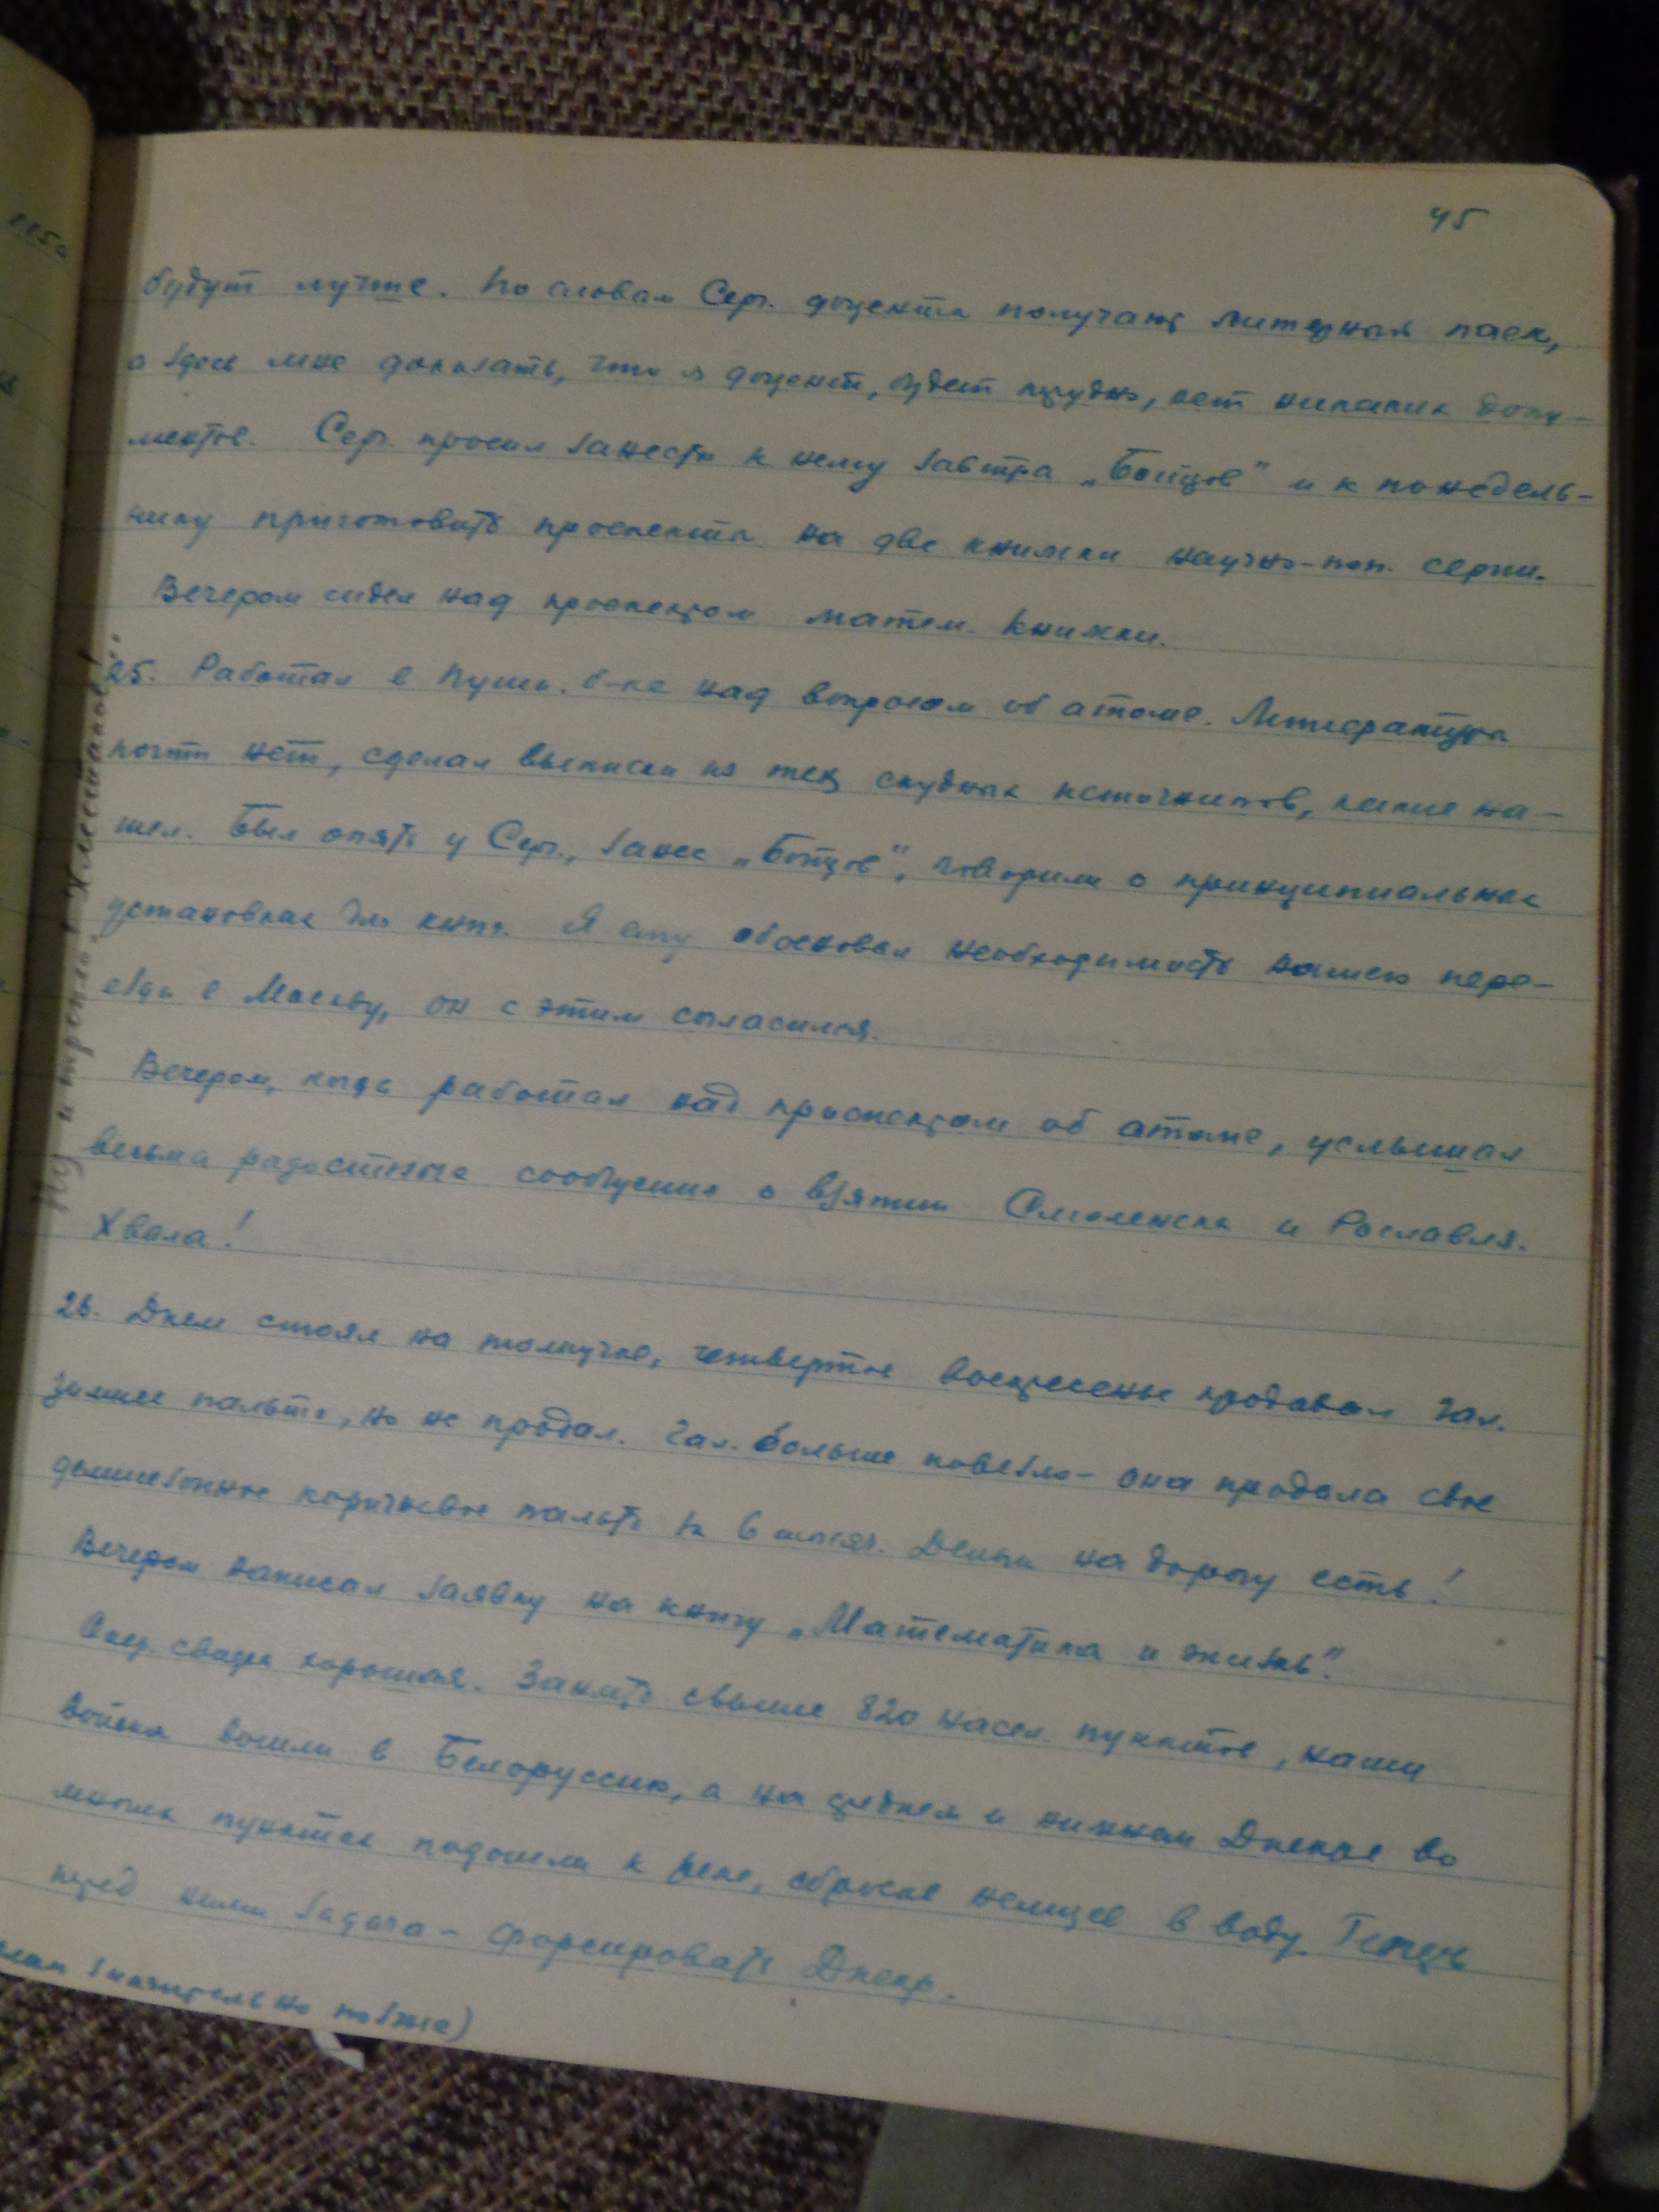 45
будут лучше. По словам Серг. доценты получают литерный паек,
а здесь мне доказать, что я доцент, будет трудно, нет никаких доку-
ментов. Серг. просил занести к нему завтра „Бойцов" и к понедель-
нику приготовить проспекты на две книжки научно-поп. серии.
Вечером сидел над проспектом матем. книжки.
25. Работал в Пушк. б-ке над вопросом об атоме. Литературы
почти нет, сделал выписки из тех скудных источников, какие на-
шел. Был опять у Серг., занес „Бойцов", говорили о принципиальных
установках для книг. Я ему обосновал необходимость нашего пере-
езда в Москву, он с этим согласился.
Вечером, когда работал над проспектом об атоме, услышал
весьма радостные сообщения о взятии Смоленска и Рославля.
Хвала!
26. Днем стоял на толкучке, четвертое воскресенье продавал Гал.
зимнее пальто, но не продал. Гал. больше повезло – она продала свое
демисезонное коричневое пальто за 6 тысяч. Деньги на дорогу есть!
Вечером написал заявку на книгу „Математика и жизнь".
Опер. сводка хорошая. Занято свыше 820 насел. пунктов, наши
войска вошли в Белоруссию, а на среднем и нижнем Днепре во
многих пунктах подошли к реке, сбросив немцев в воду. Теперь
перед ними задача – форсировать Днепр.
значительно позже)
Ну и трепло! Хлестаков!